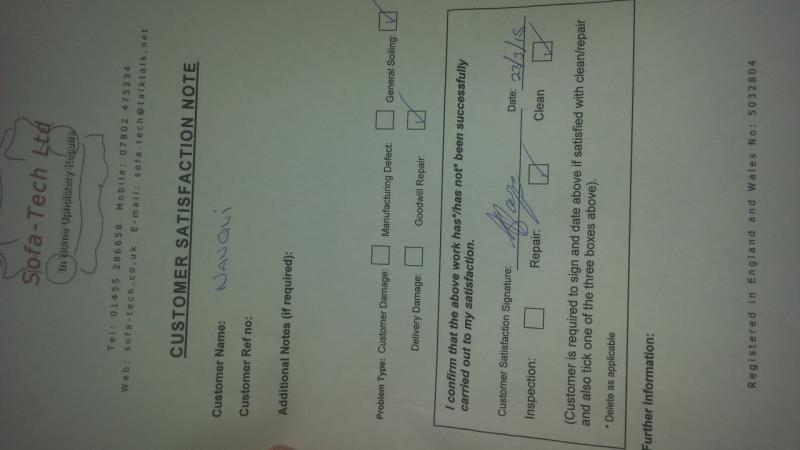 Sofa-Tech Ltd
In Home Upholstery Repairs
Tel: 01455 286658 Mobile: 07802 475234
Web: sofa-tech.co.uk E-mail: sofa-tech@talktalk.net
CUSTOMER SATISFACTION NOTE
Customer Name: NAVQUI
Customer Ref no:
Additional Notes (if required):
Problem Type: Customer Damage: Manufacturing Defect: General Soiling:
Delivery Damage: Goodwill Repair:
I confirm that the above work has*/has not* been successfully
carried out to my satisfaction.
Customer Satisfaction Signature: Date: 23/3/15
Inspection: Repair: Clean
(Customer is required to sign and date above if satisfied with clean/repair
and also tick one of the three boxes above).
* Delete as applicable
Further Information:
Registered in England and Wales No: 5032804